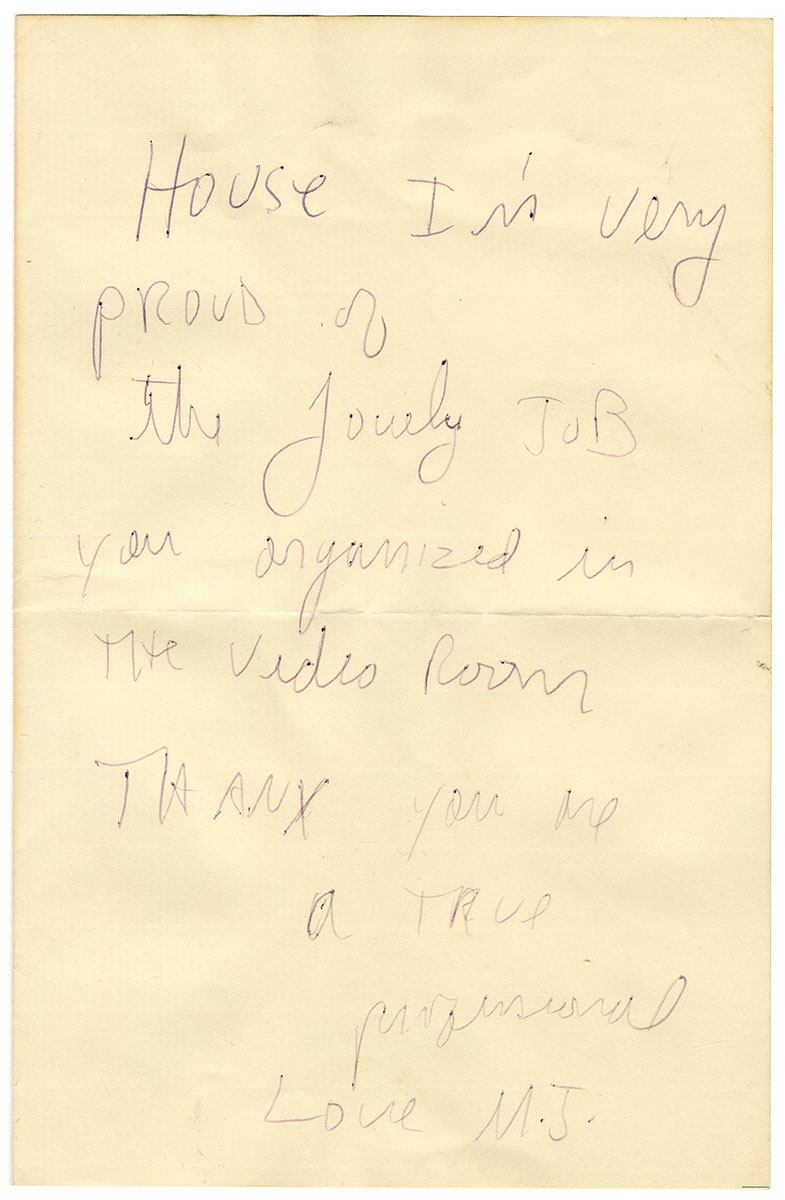 House I'm very
PROUD of
the lovely JOB
you organized in
THe Video Room
THANX you are
a TRUe
professional
Love M.J.